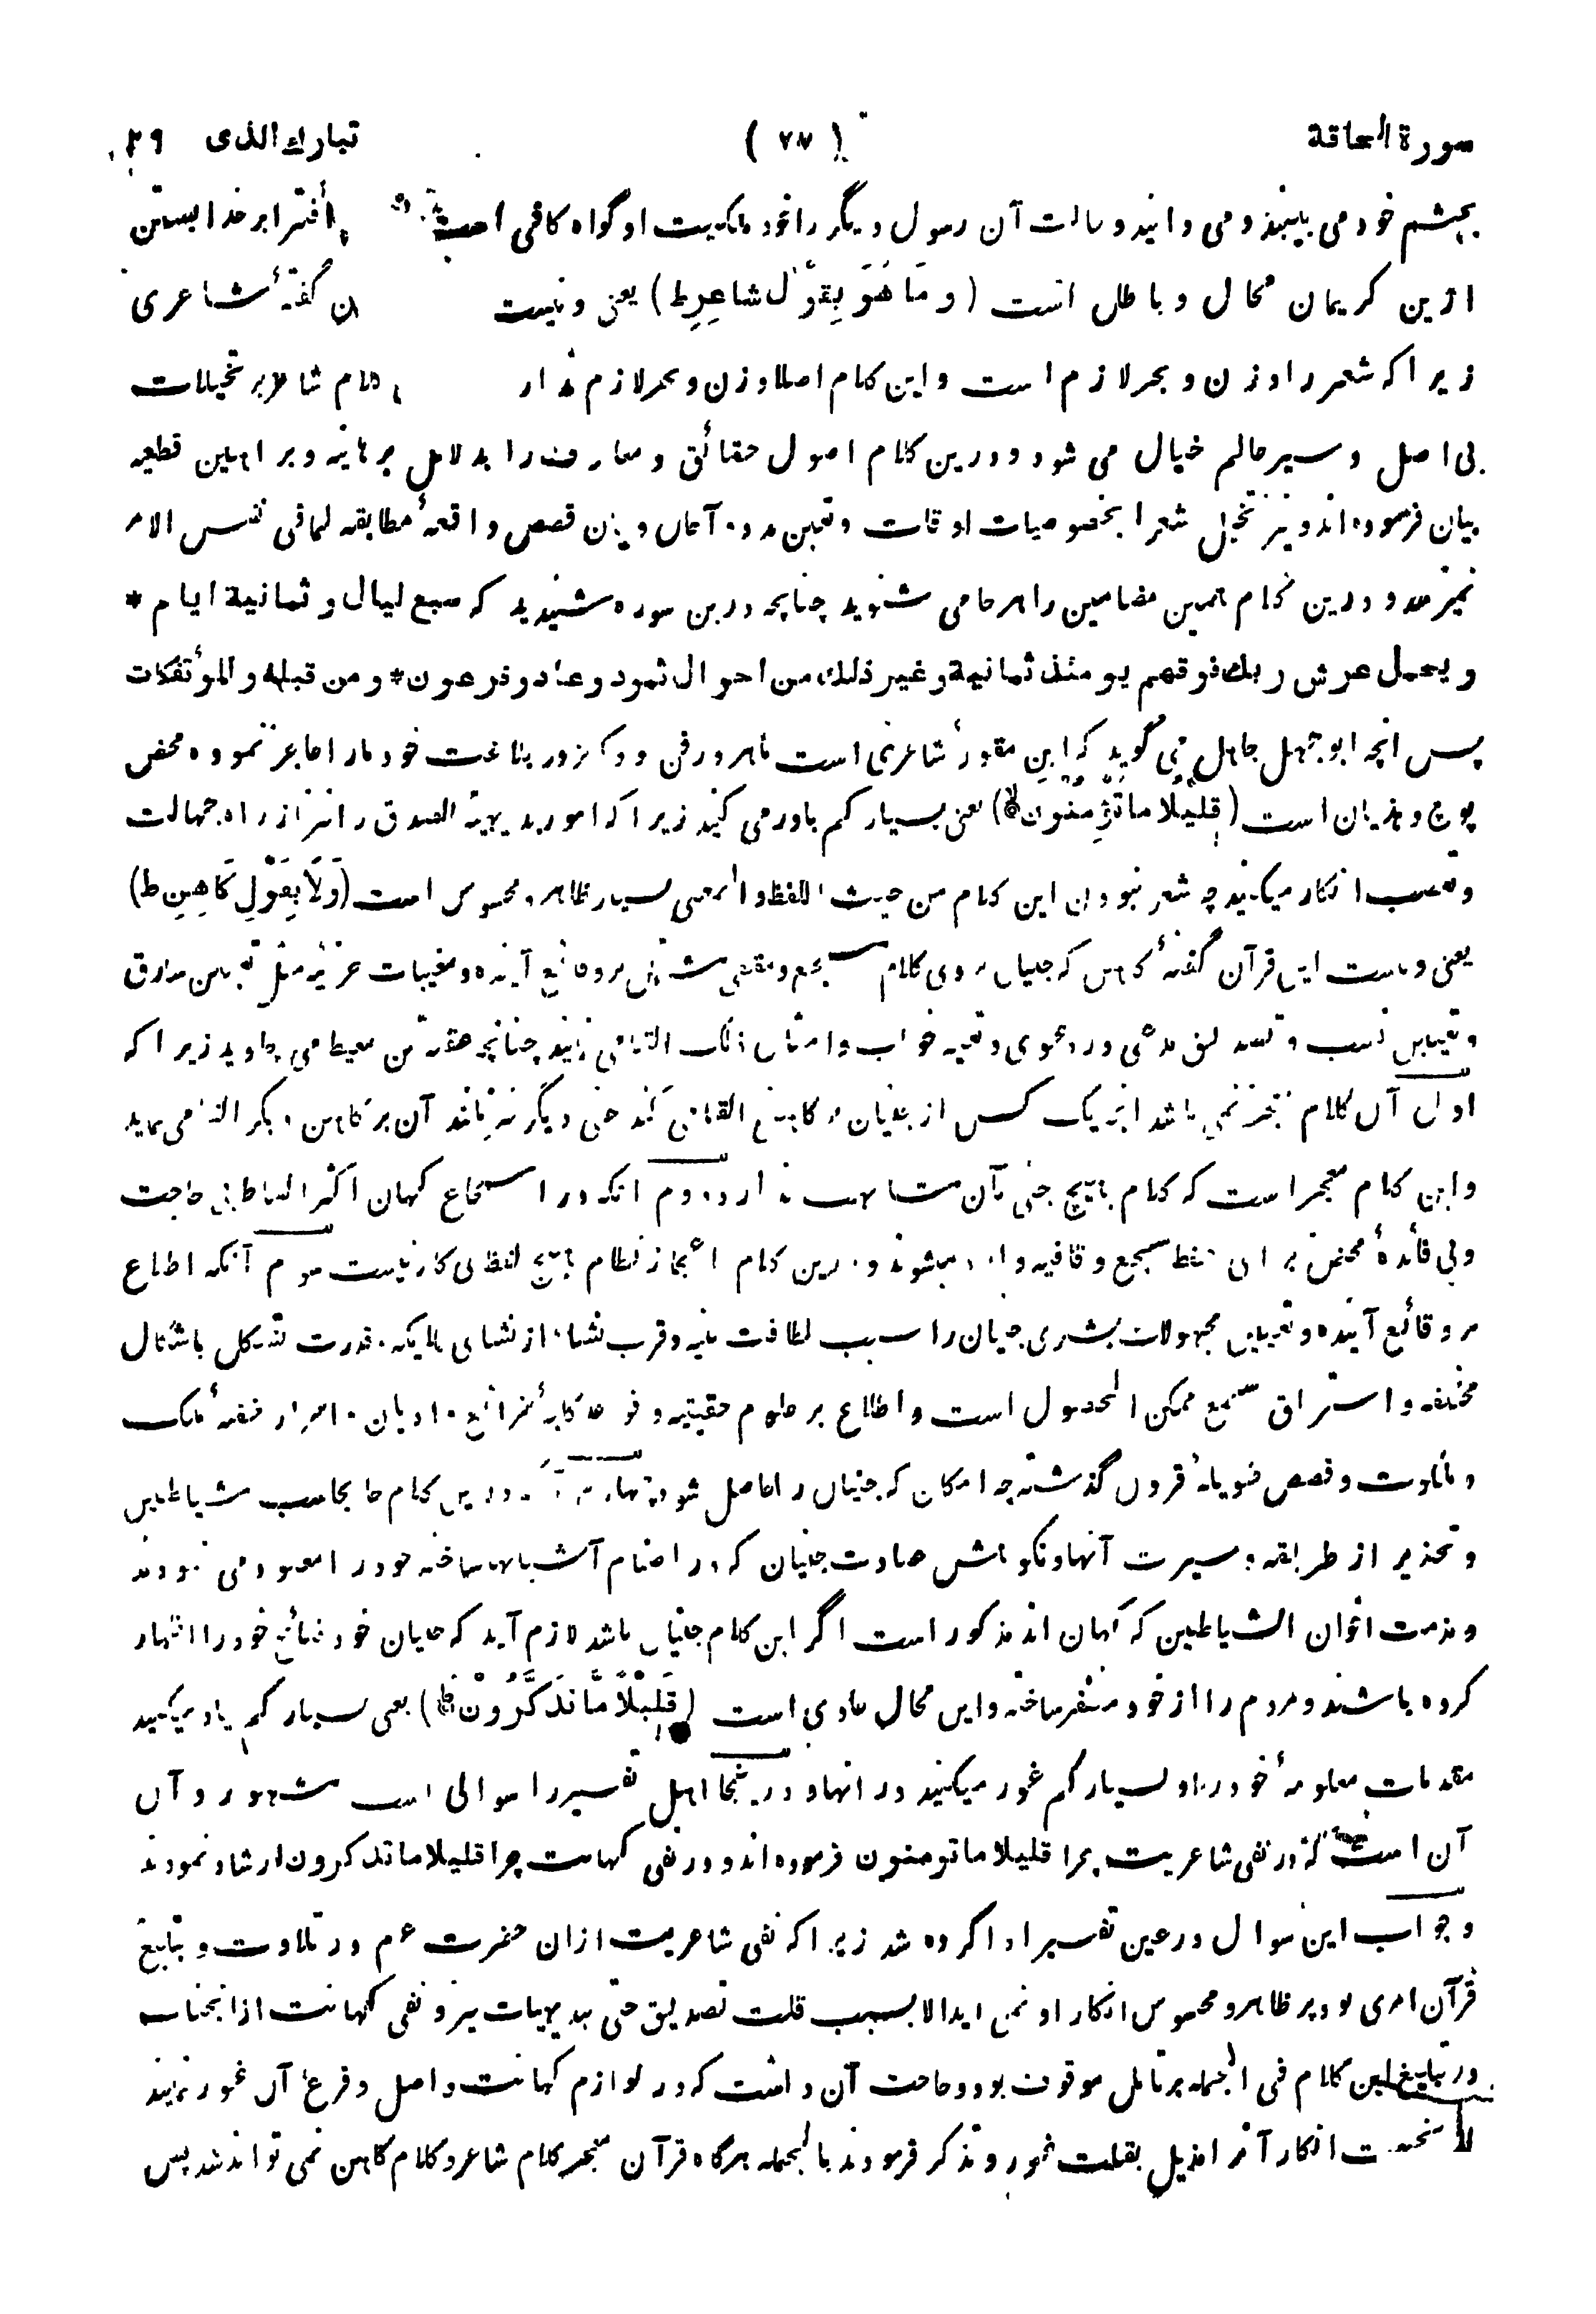 سورة الحاقة (٧٧) تبارك الذى ٢٩
بچشم خود می بینند و می دانید و رسالت آن رسول دیگر را خود ملکیت او گواه کافی است افترا بر خدا بستن
ازین کریمان محال و باطل است (وَمَا هُوَ بِقَوْلِ شَاعِرٍط) یعنی و نیست گفتهٔ شاعری
زیرا که شعر را وزن و بحر لازم است و این کلام اصلا وزن و بحر لازم ندارد کلام شاعر بر تخیلات
بی اصل و سیر عالم خیال می شود و درین کلام اصول حقائق و معارف را بدلائل برهانیه و براهین قطعیه
بیان فرموده اند و نیز تخیل شعرا بخصوصیات اوقات و تعین مدد آحاد و بیان قصص واقعهٔ مطابقه لما فی نفس الامر
نمیرسد و درین کلام همین مضامین را هر جا می شنوید چنانچه درین سوره شنیدید که سبع لیال و ثمانیة ایام *
و یحمل عرش ربك فوقهم یومئذ ثمانیة و غیر ذلك من احوال ثمود و عاد و فرعون * و من قبله و المؤتفکات
پس انچه ابو جهل جاهل می گوید که این مقولهٔ شاعری است ماهر درفن و که بزور بلاغت خود مارا عاجز نموده محض
پوچ و هذیان است (قَلِيْلًا مَا تُؤْمِنُونَ) یعنی بسیار کم باور می کنید زیرا که امور بدیهیة الصدق را نیز از راه جهالت
و تعصب انکار میکنید چه شعر نبودن این کلام من حیث اللفظ و المعنی بسیار ظاهر و محسوس است (وَلَا بِقَوْلِ كَاهِنٍط)
یعنی و نیست این قرآن گفتهٔ کاهن که جنیان بروی کلام مسجع و مقفی مشتمل بر وقائع آینده و مغیبات جزئیه مثل تعیین سارق
و تعیین نسب و تصدیق مدعی در دعوی و تعبیر خواب و امثال ذلک القا می نمایند چنانچه عقبة بن معیط می گوید زیرا که
اول آن کلام معجز نمی باشد انچه یک کس از جنیان بر کاهنی القا می کند جنی دیگر نیز مانند آن بر کاهن دیگر القا می نماید
و این کلام معجز است که کلام هیچ جنی بآن مشابهت ندارد دوم انکه در اسجاع کهان اکثر الفاظ بی حاجت
و بی فائدهٔ محض برای حفظ سجع و قافیه وارد میشوند و درین کلام اعجاز نظام هیچ لفظ بی کار نیست سوم آنکه اطلاع
بر وقائع آینده و تعیین مجهولات بشری جنیان را بسبب لطافت بنیه و قرب نشاء از نشای ملائکه و قدرت تشکل باشکال
مختلفه و استراق سمع ممکن الحصول است و اطلاع بر علوم حقیقیه و قواعد کلیه شرائع و ادیان و اسرار خفیهٔ ملک
و ملکوت و قصص قرون گذشته چه امکان که جنیان را حاصل شود چهارم آنکه درین کلام جا بجا سب شیاطین
و تحذیر از طریقه و سیرت آنها و نکوهش عبادت جنیان که در اصنام آشیانها ساخته خود را معبود می نمودند
و مذمت اخوان الشیاطین که کهان اند مذکور است اگر این کلام جنیان باشد لازم آید که جنیان خود قبائح خود را اظهار
کرده باشند و مردم را از خود متنفر ساخته و این محال عادی است (قَلِيْلًا مَّا تَذَكَّرُوْنَط) یعنی بسیار کم یاد میکنید
مقدمات معلومهٔ خود را و بسیار کم غور میکنید در انها و درینجا اهل تفسیر را سوالی است مشهور و آن
آن است که در نفی شاعریت چرا قلیلا ما تومنون فرموده اند و در نفی کهانت چرا قلیلا ما تذکرون ارشاد نمودند
و جواب این سوال در عین تفسیر ادا کرده شد زیرا که نفی شاعریت ازان حضرت عم در تلاوت و تبلیغ
قرآن امری بود پر ظاهر و محسوس انکار او نمی آید الا بسبب قلت تصدیق حتی ببدیهیات نیز و نفی کهانت ازانجناب
در تبلیغ این کلام فی الجمله بر تامل موقوف بود و حاجت آن داشت که در لوازم کهانت و اصل و فرع آن غور نمایند
انکار آنرا مذیل بقلت غور و تذکر فرمودند بالجمله هرگاه قرآن معجز کلام شاعر و کلام کاهن نمی تواند شد پس